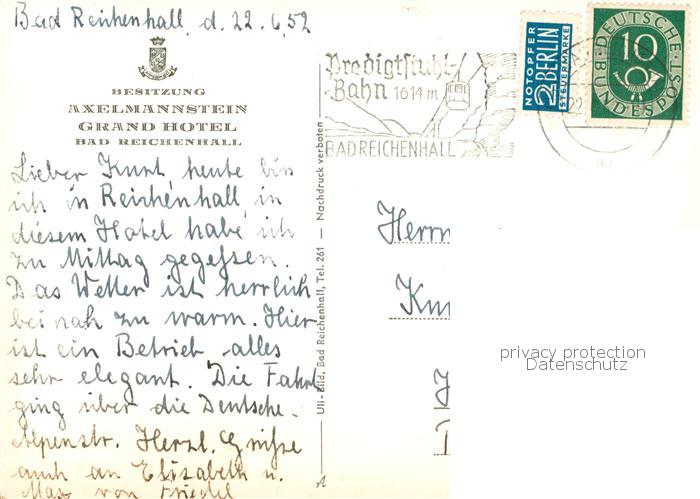 Bad Reichenhall, d. 22.6.52
BESITZUNG
AXELMANNSTEIN
GRAND HOTEL
BAD REICHENHALL
Lieber Kurt, heute bin
ich in Reichenhall, in
diesem Hotel habe ich
zu Mittag gegessen.
Das Wetter ist herrlich
bei nah zu warm. Hier
ist ein Betrieb, alles
sehr elegant. Die Fahrt
ging über die Deutsche-
Alpenstr. Herzl. Grüße
auch an Elisabeth u.
Max von Friedel
Uli-Bild, Bad Reichenhall, Tel. 261 — Nachdruck verboten
Predigtstuhl-
Bahn 1614 m
BAD REICHENHALL
NOTOPFER
2 BERLIN
STEUERMARKE
DEUTSCHE
10
BUNDESPOST
Herrn
Kur
privacy protection
Datenschutz